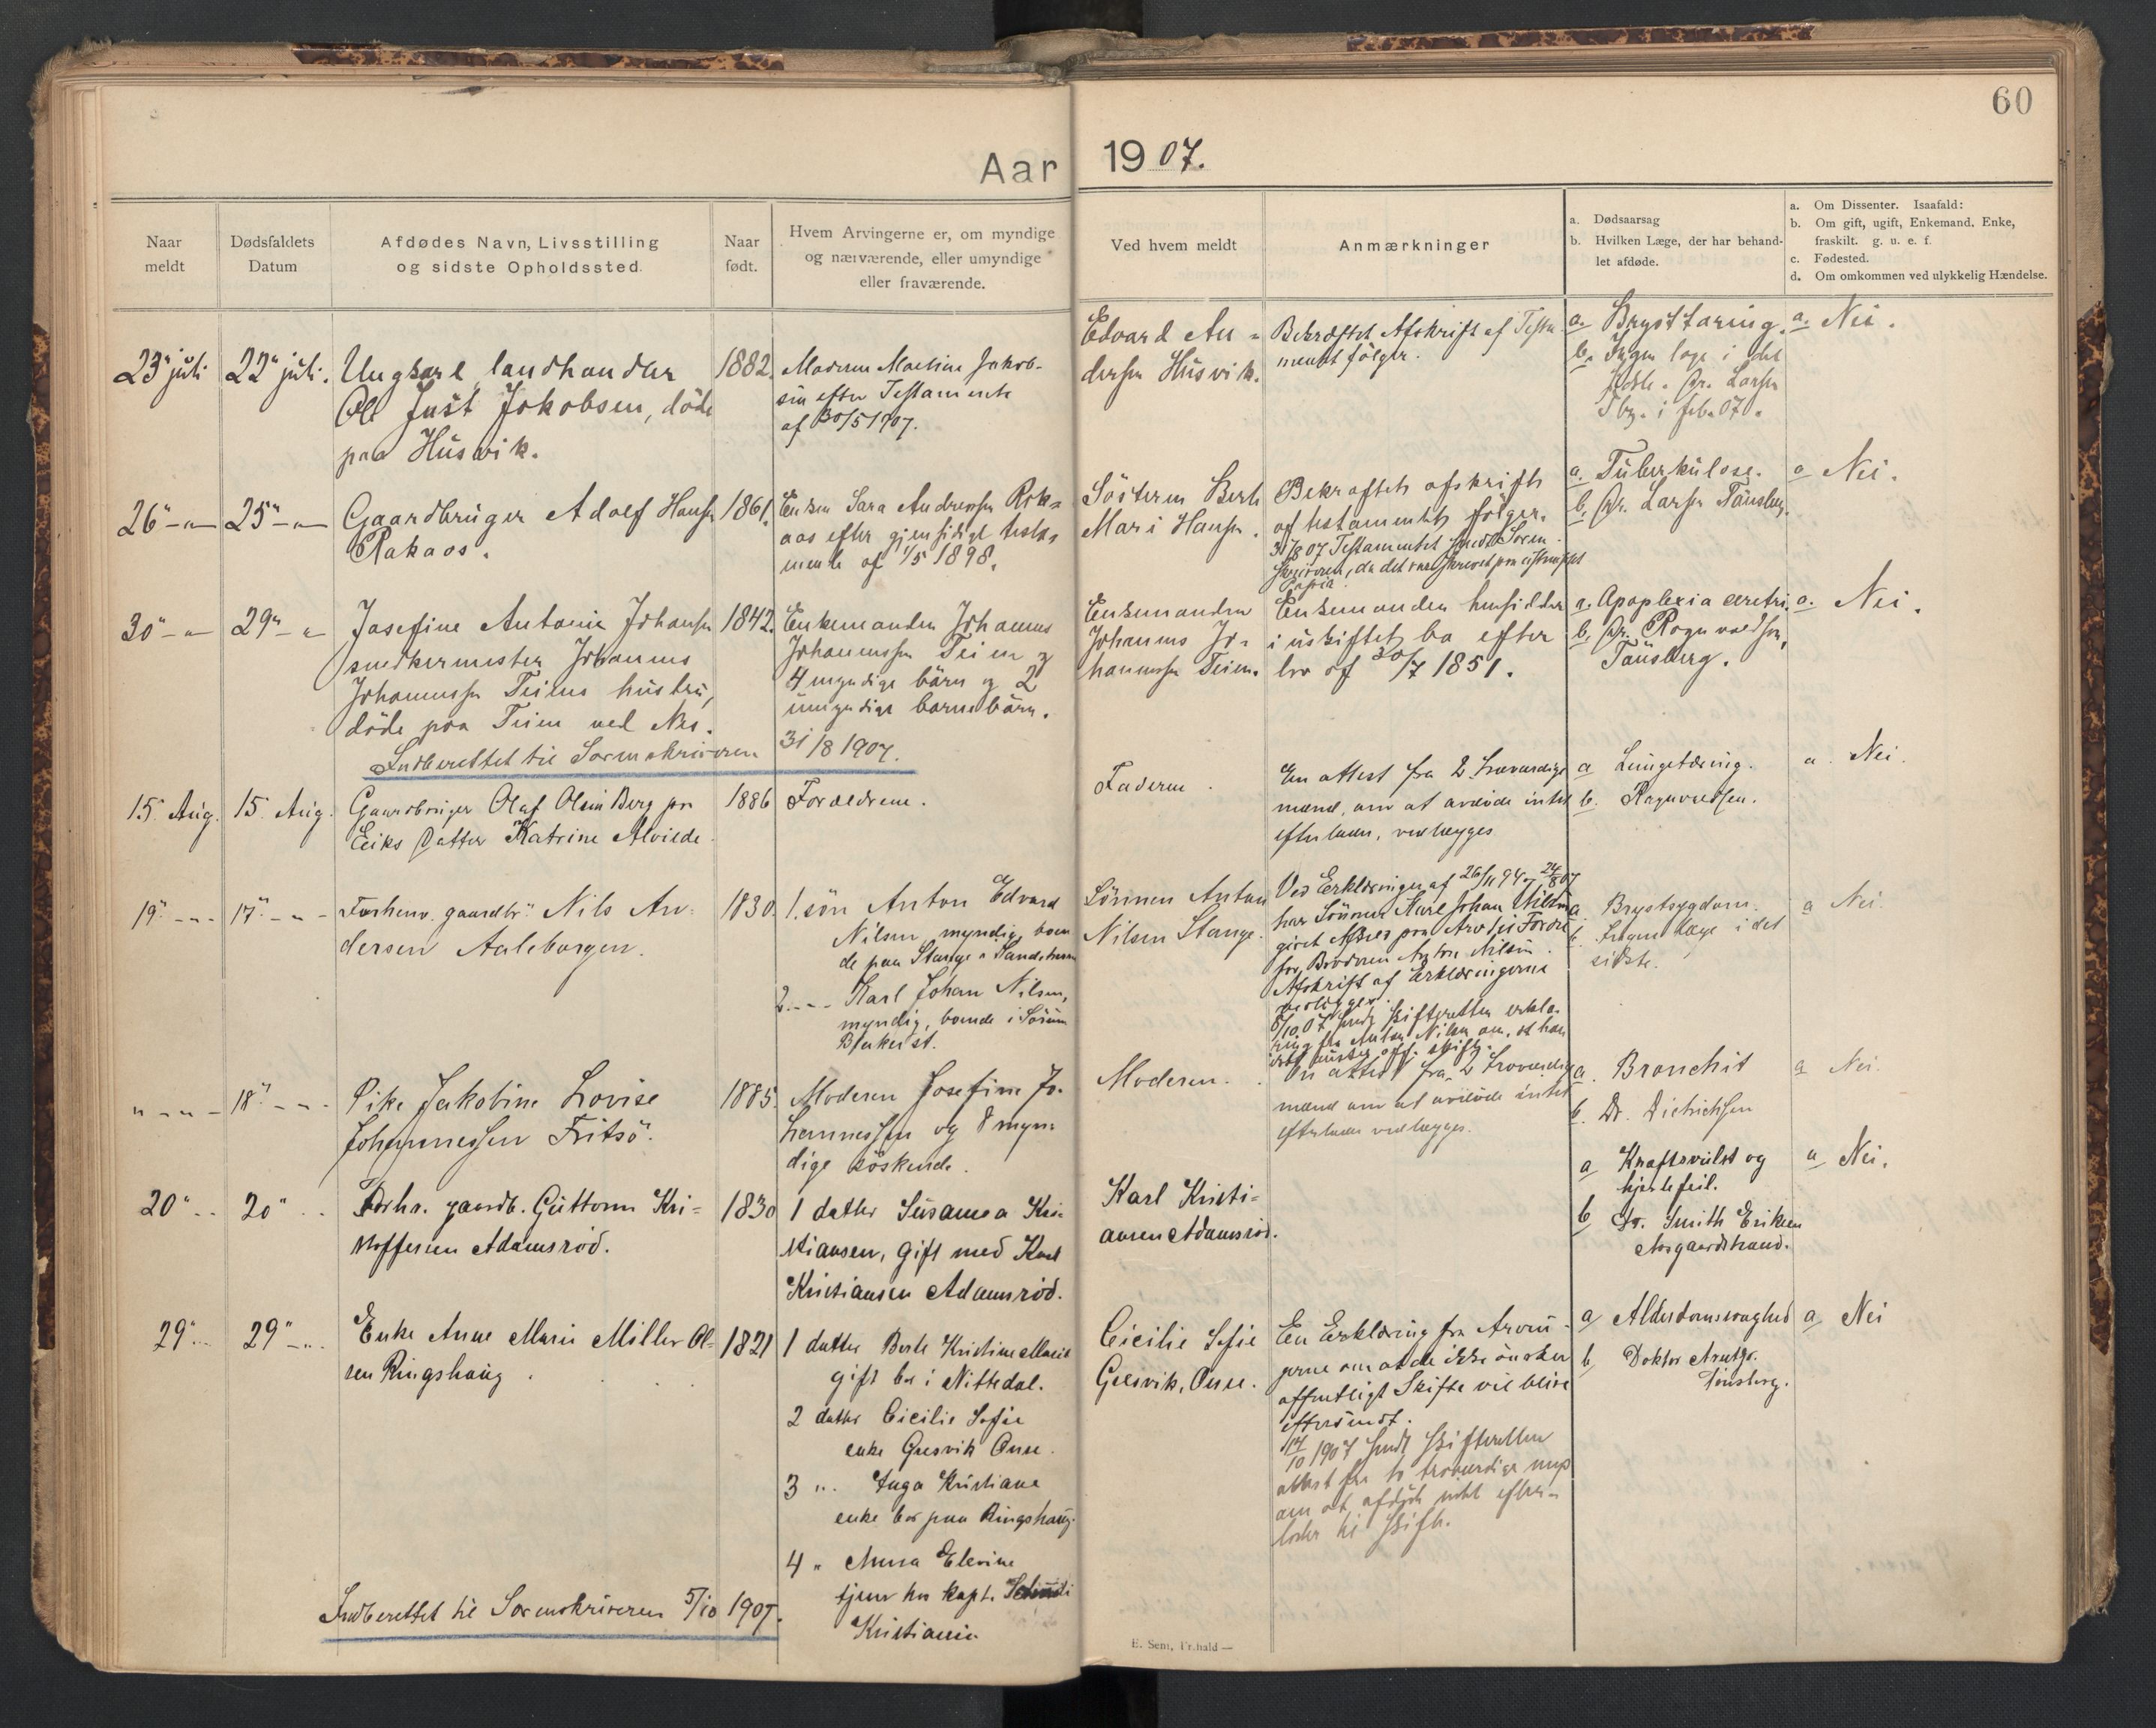 60
Aar 1907.
Naar meldt
Dødsfaldets Datum
Afdødes Navn, Livsstilling og sidste Opholdssted.
Naar født.
Hvem Arvingerne er, om myndige og nærværende, eller umyndige eller fraværende.
Ved hvem meldt
Anmærkninger
a. Dødsaarsag
b. Hvilken Læge, der har behandlet afdøde.
a. Om Dissenter. Isaafald:
b. Om gift, ugift, Enkemand, Enke, fraskilt. g. u. e. f.
c. Fødested.
d. Om omkommen ved ulykkelig Hændelse.
23" juli
22" juli.
Ungkarl landhandler
Ole Just Jakobsen, döde
paa Husvik.
1882.
Madam Mathine Jakob-
sen efter Testamente
af 30/5 1907.
Edvard An-
dersen Husvik.
Bekræftet Afskrift af Testa
mentet følger.
a. Brysttæring.
b. Ingen læge i det
sidste. Dr. Larsen
Tbg. i feb. 07.
a. Nei.
26" - " -
25" - " -
Gaardbruger Adolf Hansen
Rakaas.
1861.
Enken Sara Andresen Rak-
aas efter gjensidigt testa-
mente af 1/5 1898.
Sösteren Berte
Mari Hansen.
Bekræftet afskrift
af testamentet følger.
31/8 07 Testamentet sendt Soren
skriveren, da det var skrevet paa ustemplet
Papir.
a. Tuberkulose.
b. Dr. Larsen Tönsberg.
a Nei.
30" - " -
29" - " -
Josefine Antonie Johansen
snedkermester Johannes
Johannessen Teiens hustru,
döde paa Teien ved Nes.
1842.
Enkemanden Johannes
Johannessen Teien og
4 myndige börn og 2
umyndige barnebörn.
Enkemanden
Johannes Jo-
hannessen Teien.
Enkemanden hensidder
i uskiftet bo efter
lov af 30/7 1851.
a. Apoplexia cerebri.
b. Dr. Rognvaldsen,
Tönsberg.
a. Nei.
Indberettet til Sorenskriveren 31/8 1907.
15. Aug.
15. Aug.
Gaardbruger Olaf Olsen Berg pr
Eiks Datter Katrine Alvilde.
1886
Forældrene.
Faderen.
En attest fra 2 troværdige
mænd, om at avdöde intet
efterlader, vedlægges
a Lungetæring.
b. Ragnvaldsen.
a. Nei.
19" - " -
17" - " -
Forhenv. gaardbr. Nils An-
dersen Aaleborgen.
1830.
1. sön Anton Edvard
Nilsen, myndig, boen
de paa Stange i Sandeherred
2. - " - Karl Johan Nilsen,
myndig, boende i Sörum
Blaker st.
Sönnen Anton
Nilsen Stange.
Ved Erklæringer af 26/11 94 og 24/8 07
har Sönnen Karl Johan Nilsen
givet Afkald paa Arv til Fordel
for Broderen Anton Nilsen.
Afskrift af Erklæringerne
vedlægges.
5/10 07 sendt skifteretten erklæ-
ring fra Anton Nilsen om, at han
ikke ønsker off. skifte.
a Brystsygdom.
b. Ingen læge i det
sidste.
a Nei.
" - " -
18" - " -
Pike Jakobine Lovise
Johannessen Fritsö.
1885.
Moderen Josefine Jo-
hannessen og 8 myn-
dige söskende.
Moderen.
En attest fra 2 troværdige
mænd om at avdöde intet
efterlader vedlægges.
a. Bronchit
b. Dr. Dietrichsen
a Nei.
20" - -
20" - -
Forhv. gaardb. Guttorm Kri-
stoffersen Adamsröd.
1830
1 datter Susanna Kri-
stiansen, gift med Karl
Kristiansen Adamsröd.
Karl Kristi-
ansen Adamsröd.
a Kræftsvulst og
hjertefeil.
b Dr. Smith Eriksen
Aasgaardstrand.
a Nei.
29" - -
29" - " -
Enke Anne Marie Möller Ol-
sen Ringshaug.
1821
1 datter Berte Kristine Marie
gift bor i Nittedal.
2 datter Cicilie Sofie
enke Gresvik Onsø.
3 " Inga Kristiane
enke bor paa Ringshaug.
4 " Anna Elevine
tjener hos kapt.
Kristiania
Cicilie Sofie
Gresvik, Onsø.
En Erklæring fra Arvin-
gerne om at de ikke önsker
offentligt Skifte vil blive
eftersendt.
14/10 1907 sendt skifteretten
attest fra to troværdige mænd
om at afdøde intet efter-
lader til skifte.
a, Alderdomssvaghed
b, Doktor
Tönsberg.
a, Nei
Indberettet til Sorenskriveren 5/10 1907.
E. Sem, Fr.hald —